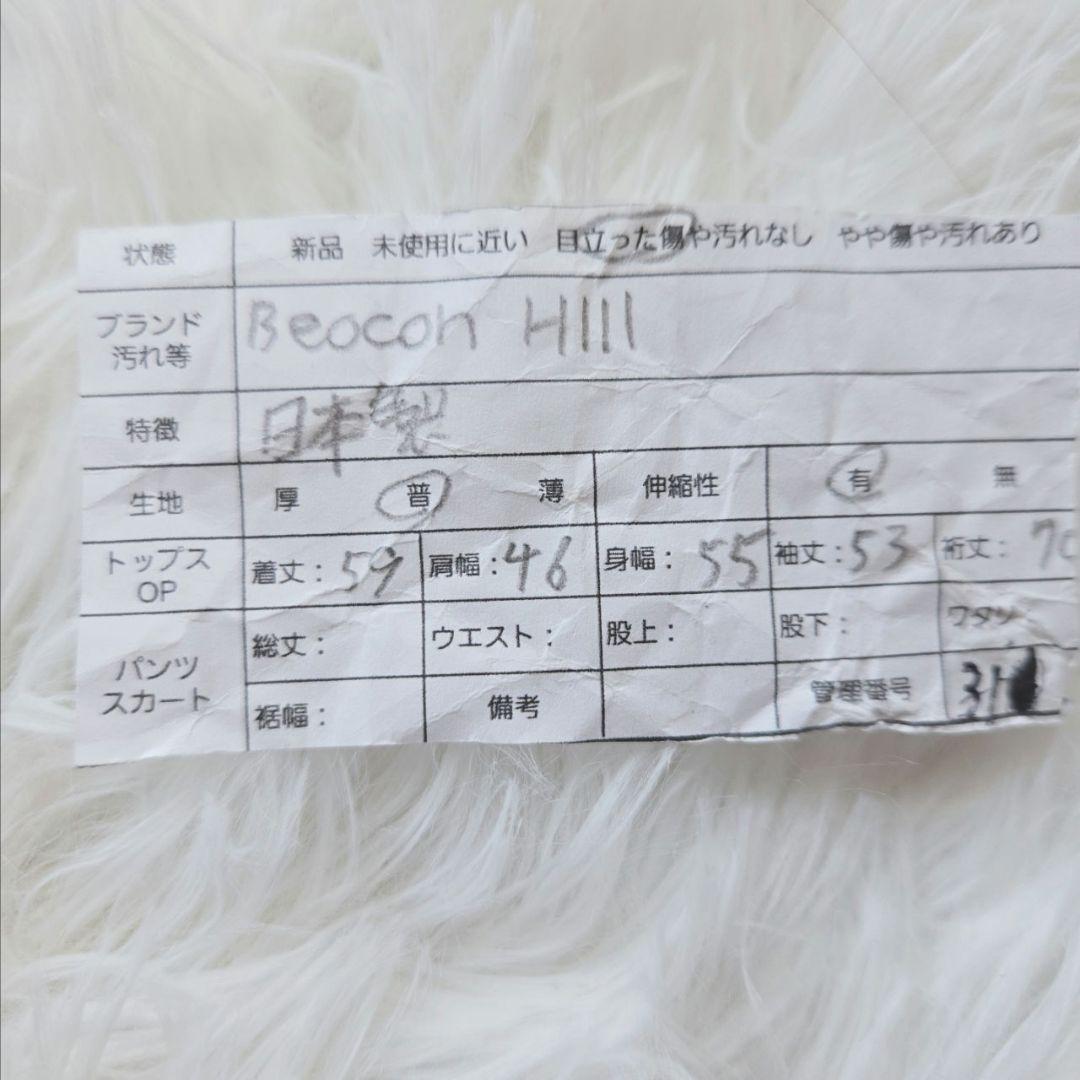 状態 新品 未使用に近い 目立った傷や汚れなし やや傷や汚れあり
ブランド 汚れ等 Beacon Hill
特徴 日本製
生地 厚 普 薄 伸縮性 有 無
トップス OP 着丈: 肩幅:46 身幅:55 袖丈:53 裄丈:70
パンツ スカート 総丈: ウエスト: 股上: 股下: ワタリ
裾幅: 備考 管理番号 31